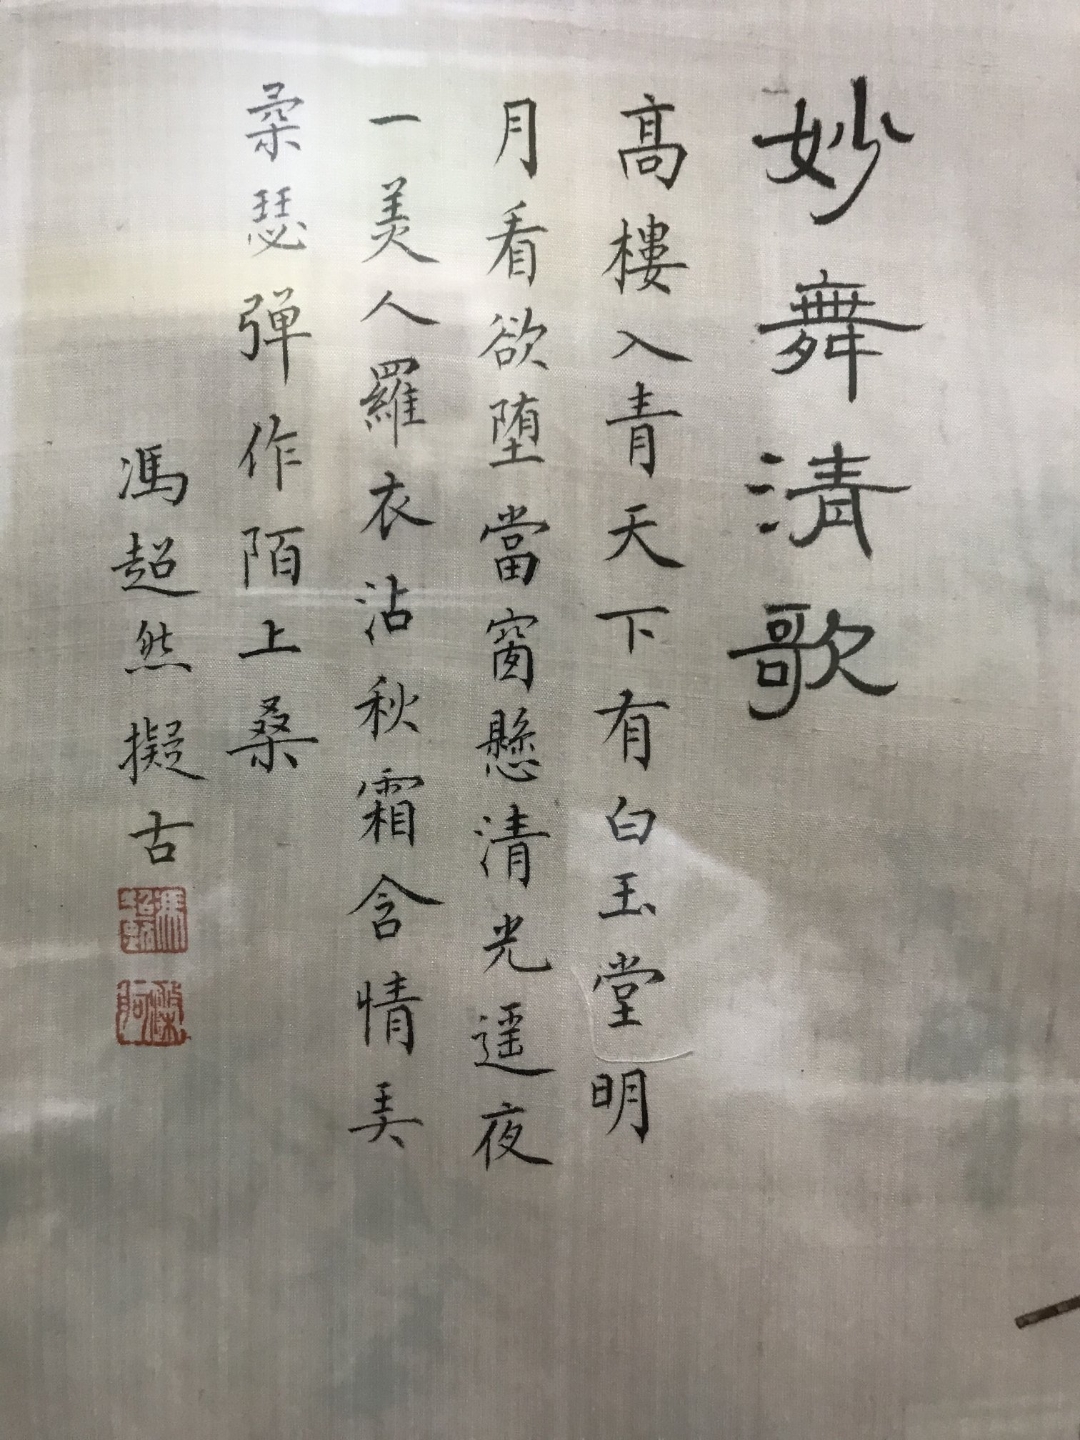 妙舞清歌
高樓入青天下有白玉堂明
月看欲堕當窗懸清光遥夜
一美人羅衣沾秋霜含情弄
柔瑟彈作陌上桑
馮超然擬古